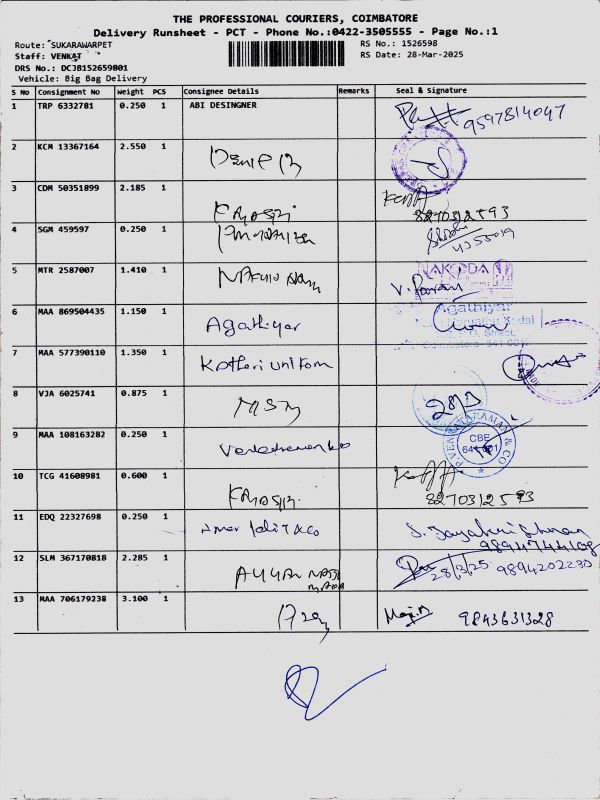 THE PROFESSIONAL COURIERS, COIMBATORE
Delivery Runsheet - PCT - Phone No.:0422-3505555 - Page No.:1
Route: SUKARAWARPET
RS No.: 1526598
Staff: VENKAT
RS Date: 28-Mar-2025
DRS No.: DCJB152659801
Vehicle: Big Bag Delivery
S No Consignment No Weight PCS Consignee Details Remarks Seal & Signature
1 TRP 6332781 0.250 1 ABI DESINGNER 9597814047
2 KCM 13367164 2.550 1
3 CDM 50351899 2.185 1 8270312593
4 SGM 459597 0.250 1
5 MTR 2587007 1.410 1 NAKODA
6 MAA 869504435 1.150 1 Agathiyar Agathiyar
7 MAA 577390110 1.350 1 Kothari uniform
8 VJA 6025741 0.875 1 MSM 28/3
9 MAA 108163282 0.250 1 P. VENKATARAMAN & CO CBE 641 001
10 TCG 41608981 0.600 1 8270312593
11 EDQ 22327698 0.250 1 S. Jayakrishnan
9894744108
12 SLM 367170818 2.285 1 28/3/25 9894202230
13 MAA 706179238 3.100 1 9843631328